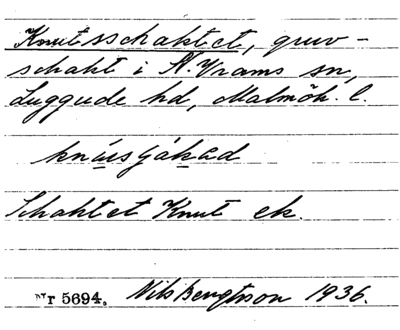 Knutsschaktet, gruv-
schakt i N. Vrams sn,
Luggude hd, Malmöh. l.
knússjákad
Schaktet Knut ek.
Nr 5694. Nils Bengtsson 1936.